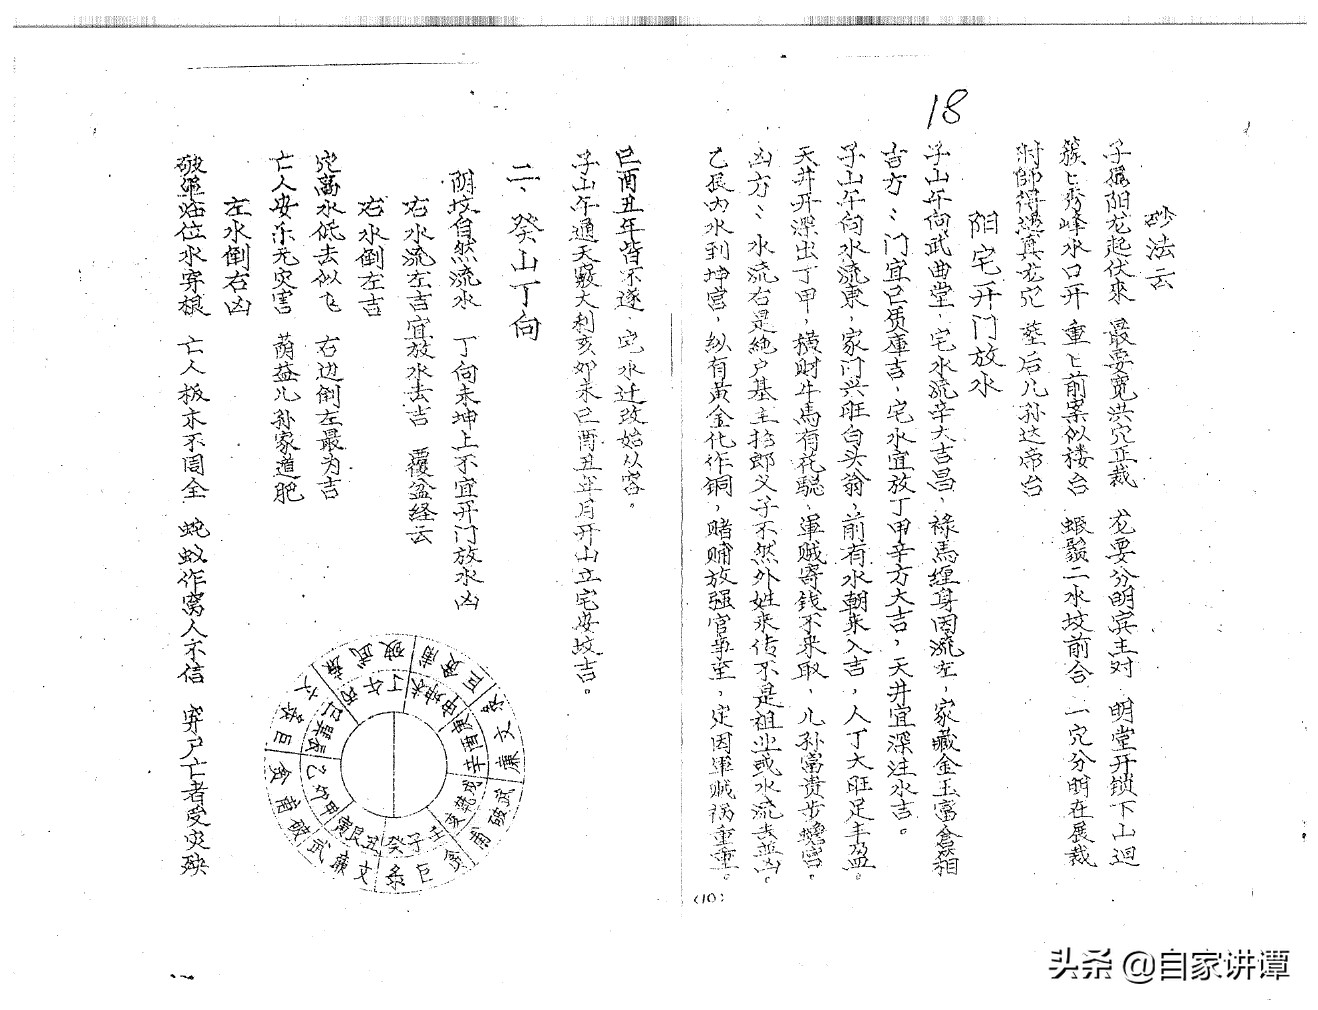 18
砂法云
子癸阳龙起伏来 最要宽洪穴正裁 龙要分明宾主对 明堂开锁下山迴
簇簇秀峰水口开 重重前案似楼台 蝦鬚二水坟前合 一穴分明在展裁
时师得遇真龙穴 葬后儿孙达帝台
阳宅开门放水
子山午向武曲堂，宅水流辛大吉昌，禄馬缠身因流左，家藏金玉富
吉方：门宜己质庫吉，宅水宜放丁甲辛方大吉，天井宜深注水吉。
子山午向水流東，家门兴旺白头翁，前有水朝来入吉，人丁大旺足丰盈。
天井开深出丁甲，横财牛馬有花驄，軍贼寄钱不来取，儿孙富贵步蟾宫。
凶方：水流右是純户基主招郎义子不然外姓来传不是祖业或水流去並凶。
乙辰丙水到坤宫，纵有黃金化作铜，赌赙放强官事至，定因軍贼祸重重。
(10)
已酉丑年皆不遂，宅水迁改始从容。
子山午通天竅大利亥卯未已酉丑年月开山立宅安坟吉。
二、癸山丁向
阴坟自然流水 丁向未坤上不宜开门放水凶
右水流左吉宜放水去吉 覆盆经云
右水倒左吉
穴高水低去似飞 右边倒左最为吉
亡人安乐无灾害 荫益儿孙家道肥
左水倒右凶
破军临位水穿根 亡人板木不周全 蛇蚁作窝人不信 穿尸亡者受灾殃
丙午丁未坤申庚酉辛戌乾亥壬子癸丑艮寅甲卯乙辰巽巳
头条 @自家讲谭